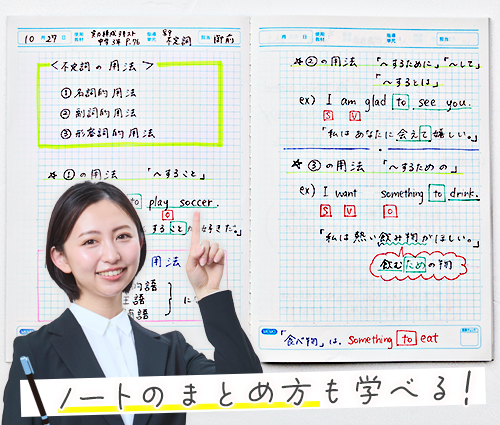 10月 27日 使用教材 中学3年 P.76 指導単元 不定詞 担当
<不定詞の用法>
①名詞的用法
②副詞的用法
③形容詞的用法
☆①の用法 「〜すること」
to play soccer.
O
すること
用法
に
月 日 使用教材 指導単元 担当
☆②の用法 「〜するために」「〜して」
「〜するとは」
ex) I am glad to see you.
S V
「私はあなたに会えて嬉しい。」
☆③の用法 「〜するための」
ex) I want something to drink.
S V O
「私は熱い飲み物がほしい。」
飲むための物
MEMO
「食べ物」は、something to eat
ノートのまとめ方も学べる!